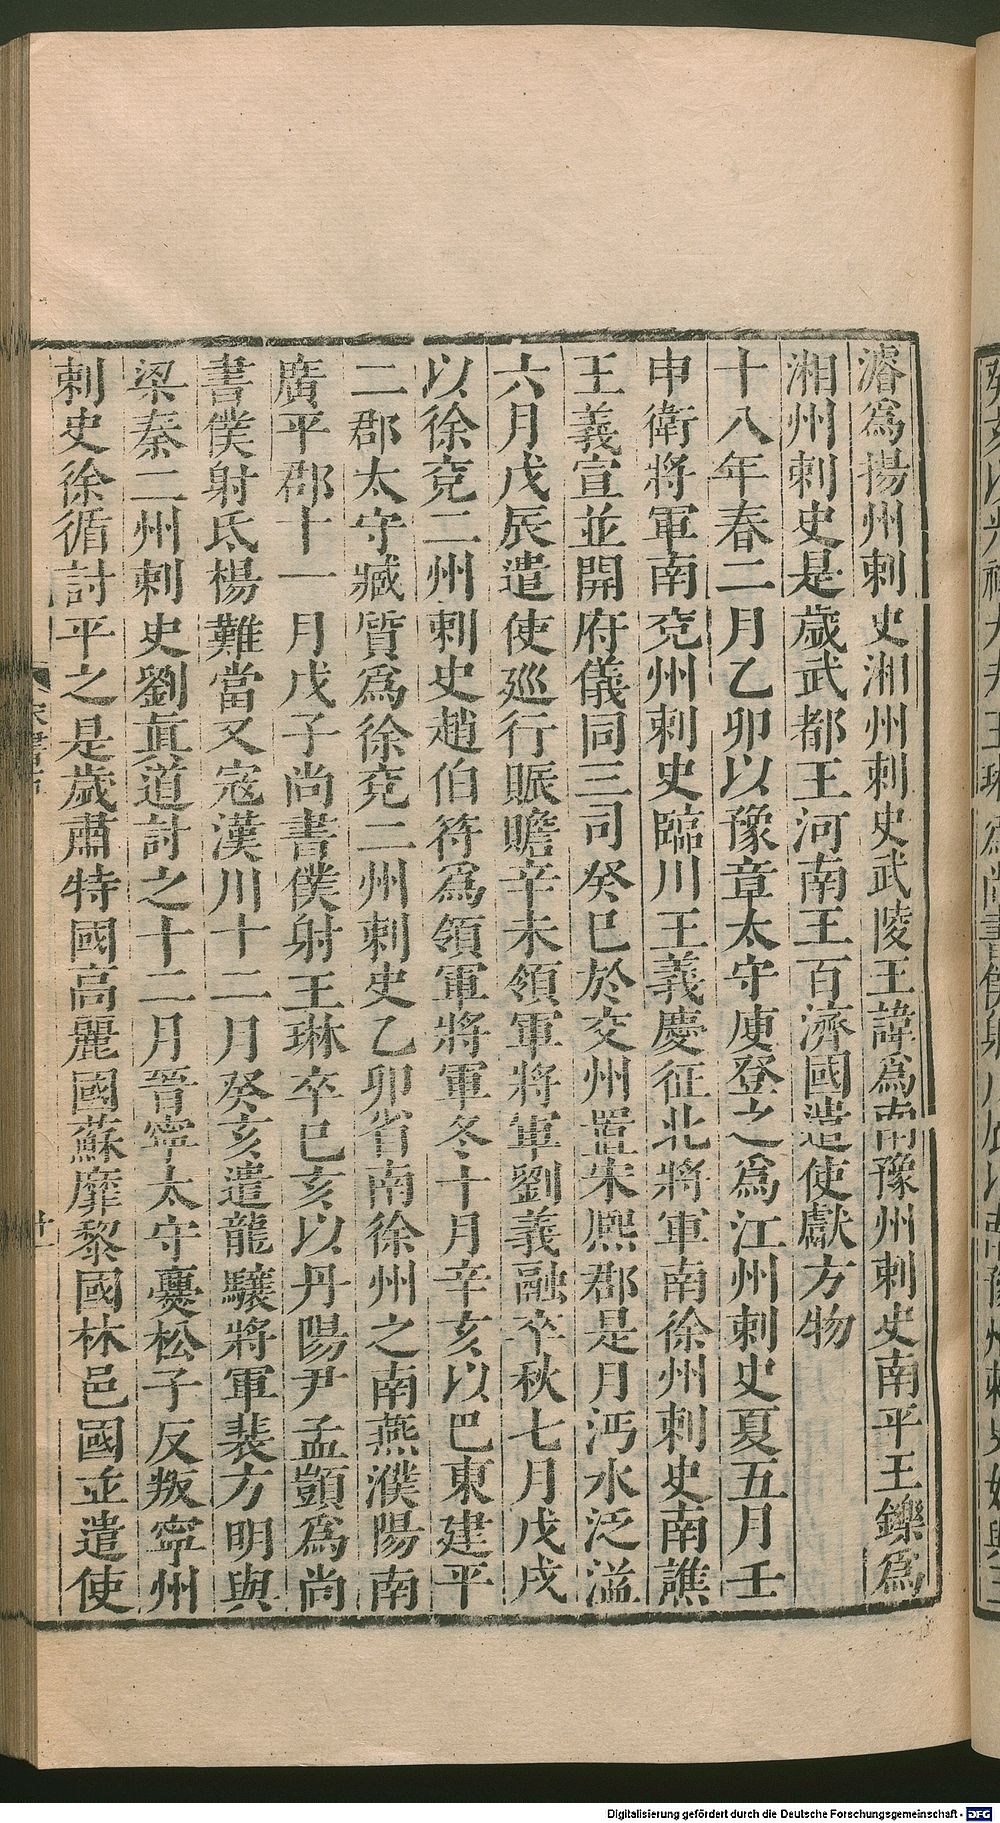 濬爲揚州刺史湘州刺史武陵王諱爲南豫州刺史南平王鑠爲
湘州刺史是歲武都王河南王百濟國遣使獻方物
十八年春二月乙卯以豫章太守庾登之爲江州刺史夏五月壬
申衛將軍南兗州刺史臨川王義慶征北將軍南徐州刺史南譙
王義宣並開府儀同三司癸巳於交州置朱熈郡是月沔水泛溢
六月戊辰遣使廵行賑贍辛未領軍將軍劉義融卒秋七月戊戌
以徐兗二州刺史趙伯符爲領軍將軍冬十月辛亥以巴東建平
二郡太守臧質爲徐兗二州刺史乙卯省南徐州之南燕濮陽南
廣平郡十一月戊子尚書僕射王琳卒巳亥以丹陽尹孟顗爲尚
書僕射氐楊難當又寇漢川十二月癸亥遣龍驤將軍裴方明與
梁秦二州刺史劉真道討之十二月晉寧太守爨松子反叛寧州
刺史徐循討平之是歲肅特國高麗國蘇靡黎國林邑國並遣使
Digitalisierung gefördert durch die Deutsche Forschungsgemeinschaft - DFG